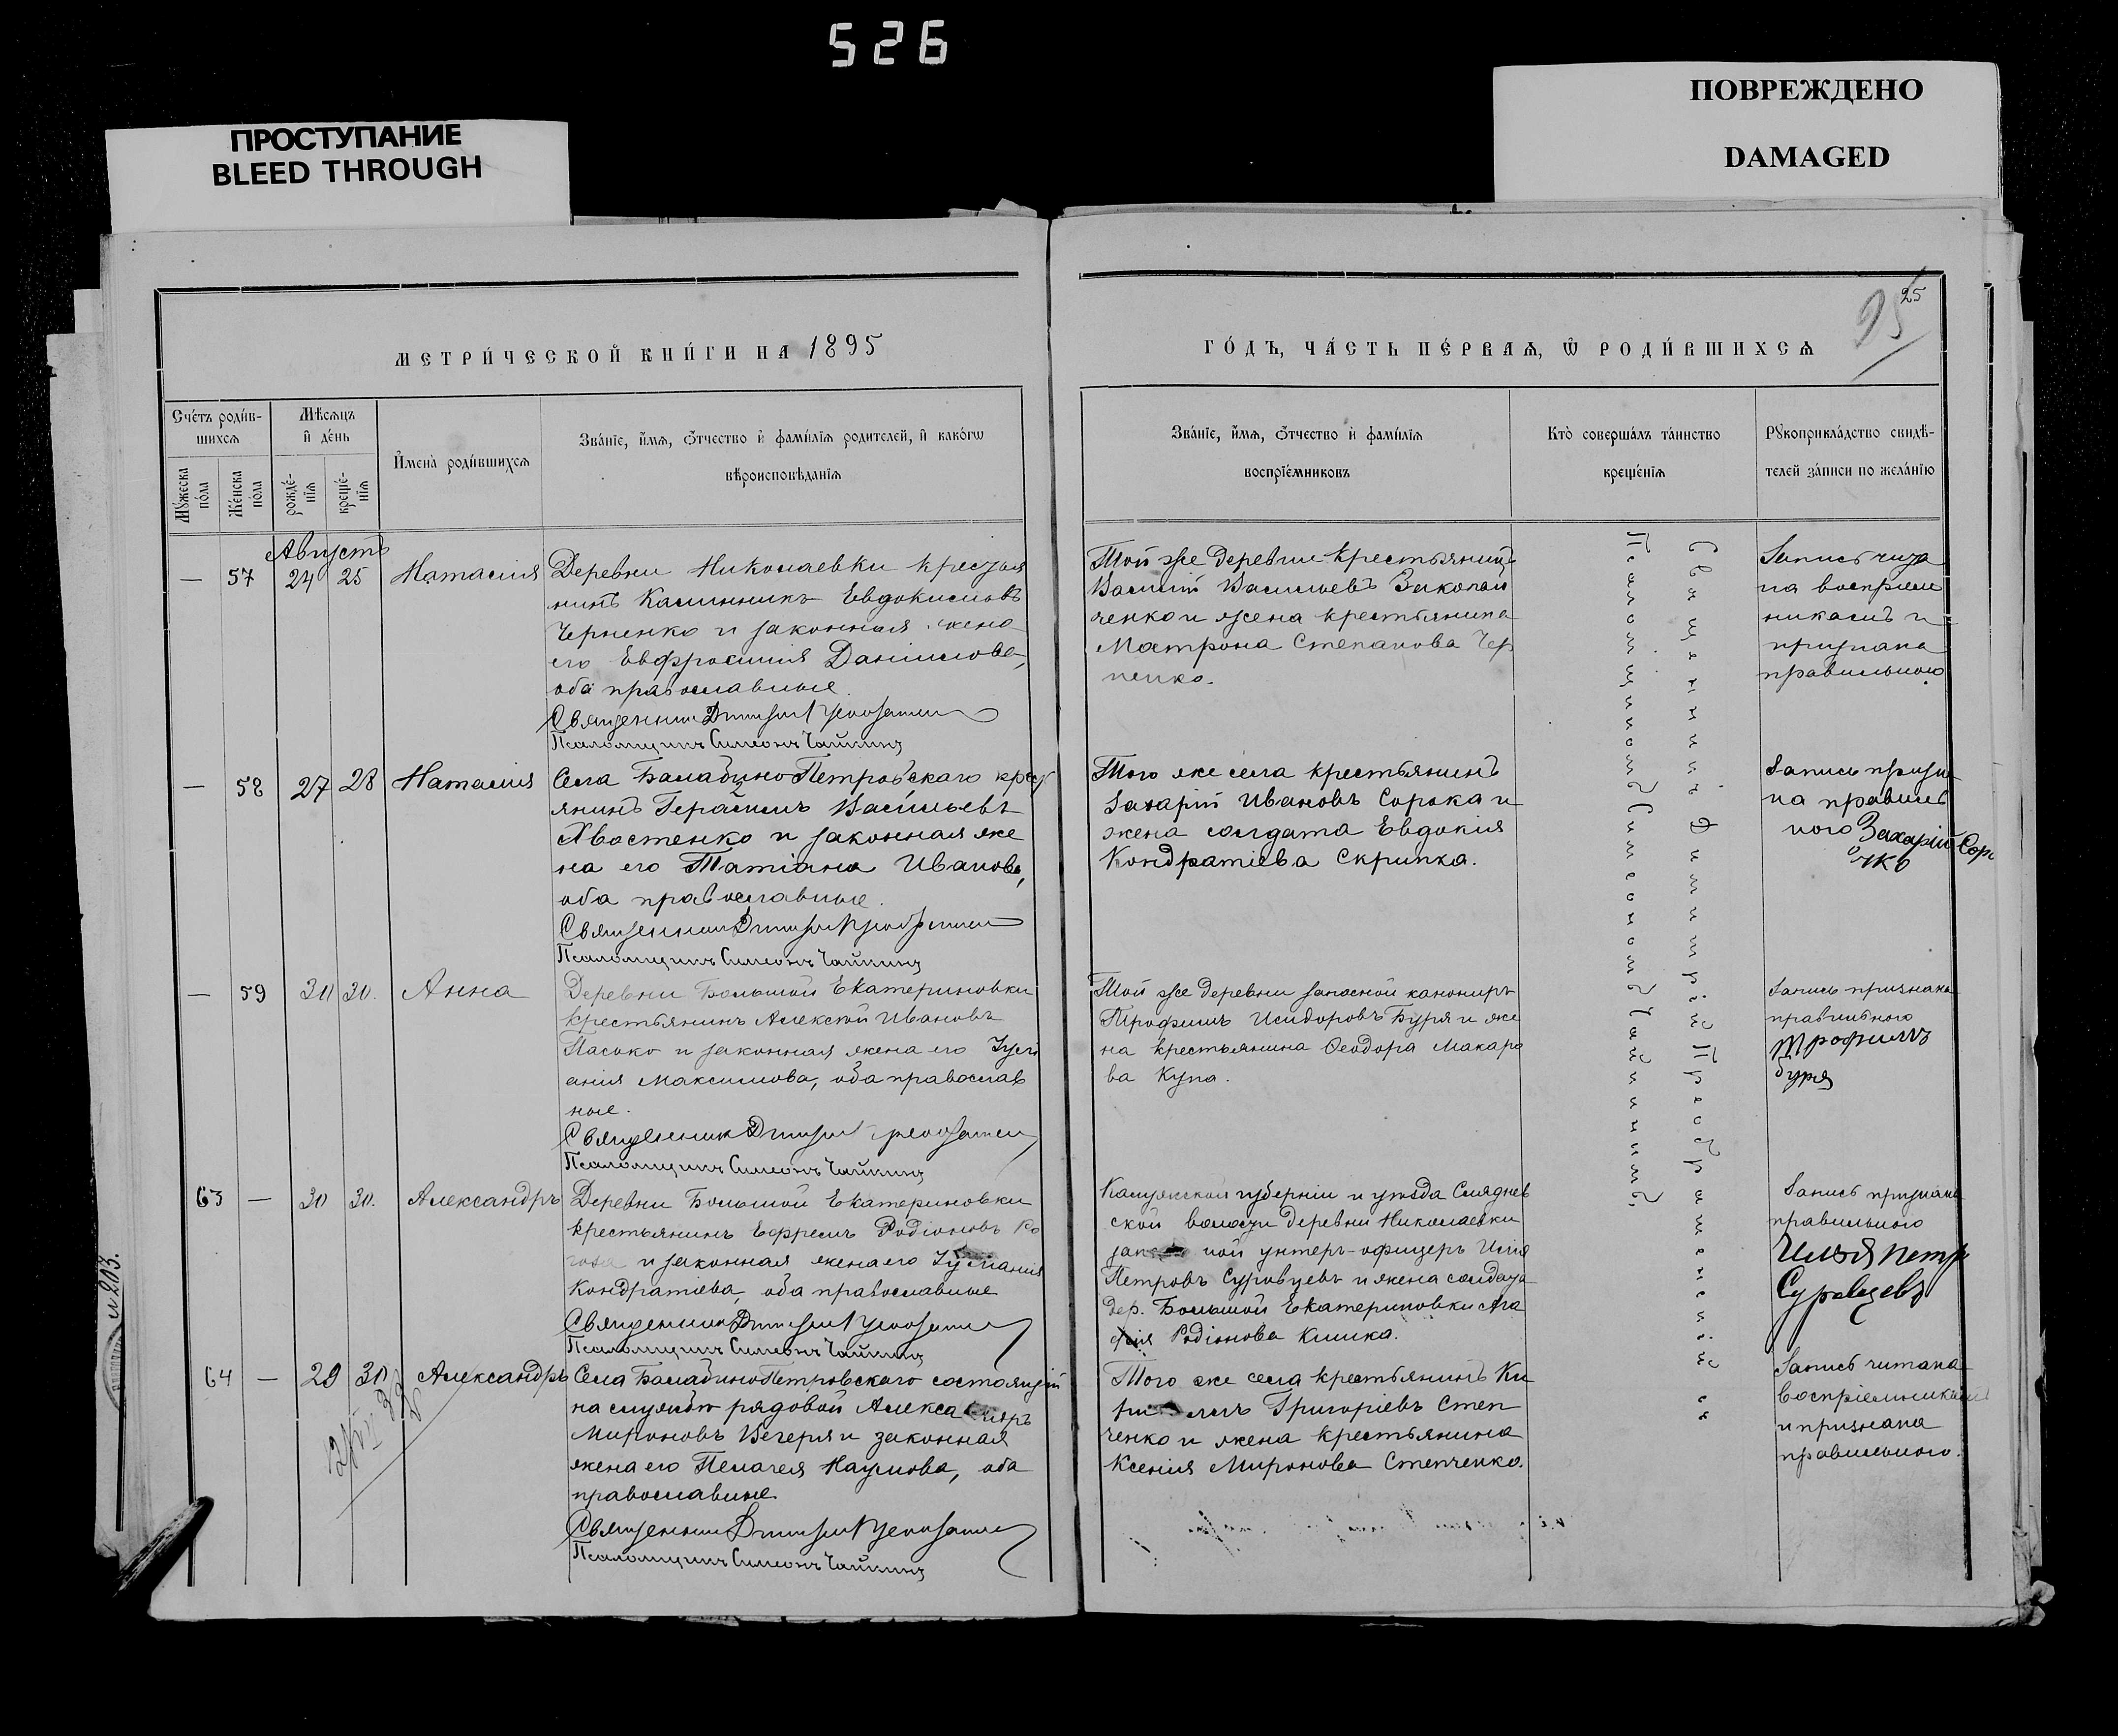 526
ПРОСТУПАНИЕ
BLEED THROUGH
ПОВРЕЖДЕНО
DAMAGED
25
МЕТРИ́ЧЕСКОЙ КНИ́ГИ НА 1895
ГО́ДЪ, ЧА́СТЬ ПЕ́РВАѦ, Ѿ РОДИ́ВШИХСѦ
Сче́тъ роди́в-
шихсѧ
Мꙋ́жеска по́ла
Же́нска по́ла
Мѣ́сѧцъ
и҆ де́нь
рожде́-
нїѧ
креще́-
нїѧ
И҆мена̀ роди́вшихсѧ
Зва́нїе, и҆́мѧ, ѻ҆́тчество и҆ фами́лїѧ родителей, и҆ како́гѡ
вѣроисповѣ́данїѧ
Зва́нїе, и҆́мѧ, ѻ҆́тчество и҆ фами́лїѧ
воспрїе́мниковъ
Кто̀ соверша́лъ та́инство
креще́нїѧ
Рꙋкоприкла́дство свидѣ́-
телей за́писи по жела́нїю
Августъ
— 57 24 25 Наталія
Деревни Николаевки крестья
нинъ Калинникъ Евдокимовъ
Черненко и законная жена
его Евфросинія Даніилова,
оба православные.
Священник Димитрій
Псаломщикъ Симеонъ Чайкинъ
Той же деревни крестьянинъ
Василій Васильевъ
ченко и жена крестьянина
Матрона Степанова Чер
ненко.
Запись чита
на восприем
никамъ и
признана
правильною
— 58 27 28 Наталія
Села Балабино Петровскаго крест
янинъ Герасимъ Васильевъ
Хвостенко и законная же
на его Татіана Иванова,
оба православные.
Священник Димитрій
Псаломщикъ Симеонъ Чайкинъ
Того же села крестьянинъ
Захарій Ивановъ Сорока и
жена солдата Евдокія
Кондратіева Скрипка.
Запись призна
на правиль
ною Захарій
— 59 30 30. Анна
Деревни Большой Екатериновки
крестьянинъ Алексѣй Ивановъ
Пасько и законная жена его Іулі
анія Максимова, оба православ
ные.
Священник Димитрій
Псаломщикъ Симеонъ Чайкинъ
Той же деревни запасной канониръ
Трофимъ Исидоровъ Буря и же
на крестьянина Ѳеодора Макаро
ва Купа.
Запись признана
правильною
Трофимъ
буря
63 — 30 30. Александръ
Деревни Большой Екатериновки
крестьянинъ Ефремъ Родіоновъ
и законная жена его Іуліанія
Кондратіева, оба православные
Священник Димитрій
Псаломщикъ Симеонъ Чайкинъ
Калужской губерніи и уѣзда
ской волости деревни Николаевки
ной унтеръ-офицеръ Илія
Петровъ Суровцевъ и жена солдата
дер. Большой Екатериновки Ага
фія Родіонова Кишка.
Запись признана
правильною
Илья петр
Суровцевъ
64 — 29 30 Александръ
Села Балабино Петровскаго состоящій
на службѣ рядовой Александръ
Мироновъ Вечеря и законная
жена его Пелагея Наумова, оба
православные
Священник Димитрій
Псаломщикъ Симеонъ Чайкинъ
Того же села крестьянинъ Ки
Григоріевъ Степ
ченко и жена крестьянина
Ксенія Миронова Степченко.
Запись читана
воспріемникамъ
и признана
правильною.
Священникъ Димитрій
Псаломщикъ Симеонъ Чайкинъ